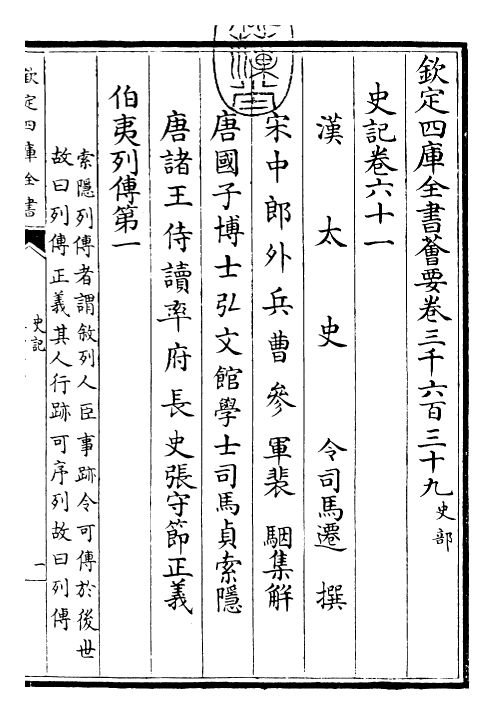 欽定四庫全書薈要卷三千六百三十九 史部
史記卷六十一
漢太史令司馬遷撰
宋中郎外兵曹參軍裴駰集解
唐國子博士弘文館學士司馬貞索隱
唐諸王侍讀率府長史張守節正義
伯夷列傳第一
索隱列傳者謂敘列人臣事跡令可傳於後世
故曰列傳正義其人行跡可序列故曰列傳
欽定四庫全書
史記
一